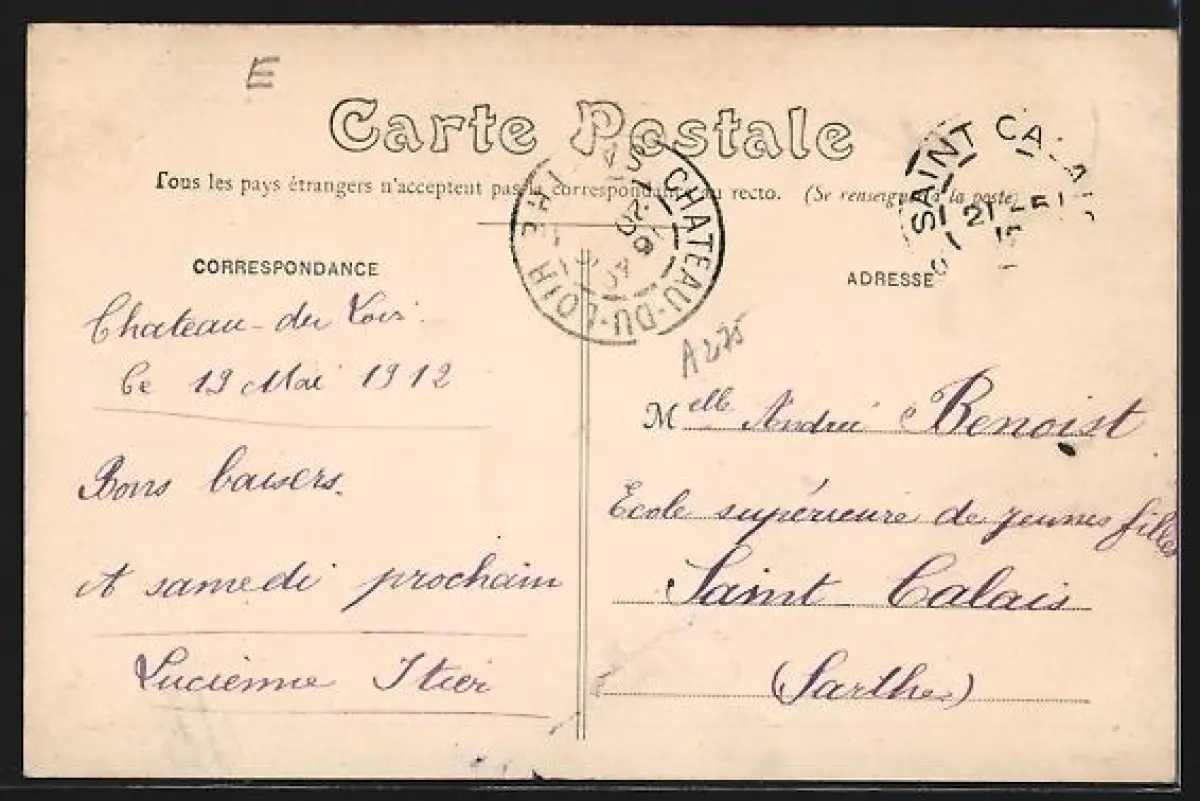 E
Carte Postale
Tous les pays étrangers n'acceptent pas la correspondance au recto. (Se renseigner à la poste)
CHATEAU-DU-LOIR SARTHE
SAINT CALAIS
21 - 5
CORRESPONDANCE
Chateau-du Loir.
le 19 Mai 1912
Bons baisers.
A samedi prochain
Lucienne Itier
ADRESSE
A275
Melle André Benoist
Ecole supérieure de jeunes filles
Saint Calais
(Sarthe)